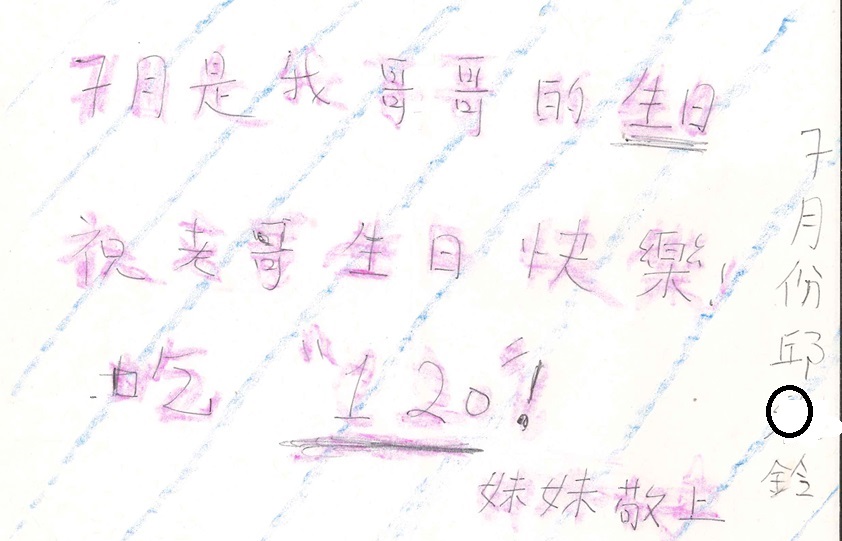 7月是我哥哥的生日
祝老哥生日快樂!
吃"120"!
妹妹敬上
7月份邱鈴